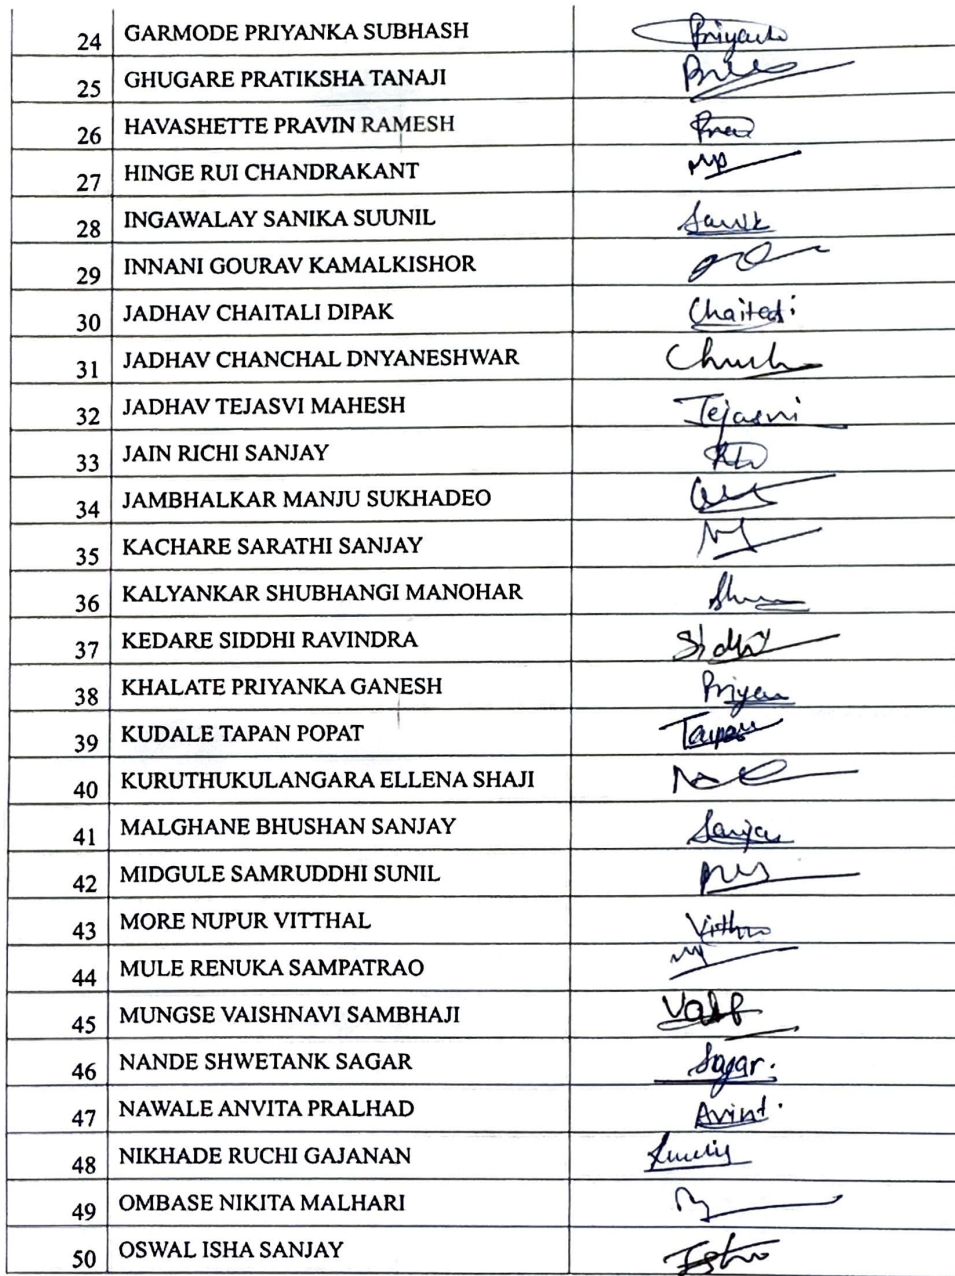 24 GARMODE PRIYANKA SUBHASH
25 GHUGARE PRATIKSHA TANAJI
26 HAVASHETTE PRAVIN RAMESH
27 HINGE RUI CHANDRAKANT
28 INGAWALAY SANIKA SUUNIL
29 INNANI GOURAV KAMALKISHOR
30 JADHAV CHAITALI DIPAK
31 JADHAV CHANCHAL DNYANESHWAR
32 JADHAV TEJASVI MAHESH Tejasvi
33 JAIN RICHI SANJAY
34 JAMBHALKAR MANJU SUKHADEO
35 KACHARE SARATHI SANJAY
36 KALYANKAR SHUBHANGI MANOHAR
37 KEDARE SIDDHI RAVINDRA
38 KHALATE PRIYANKA GANESH
39 KUDALE TAPAN POPAT
40 KURUTHUKULANGARA ELLENA SHAJI
41 MALGHANE BHUSHAN SANJAY
42 MIDGULE SAMRUDDHI SUNIL
43 MORE NUPUR VITTHAL
44 MULE RENUKA SAMPATRAO
45 MUNGSE VAISHNAVI SAMBHAJI
46 NANDE SHWETANK SAGAR Sagar.
47 NAWALE ANVITA PRALHAD
48 NIKHADE RUCHI GAJANAN
49 OMBASE NIKITA MALHARI
50 OSWAL ISHA SANJAY